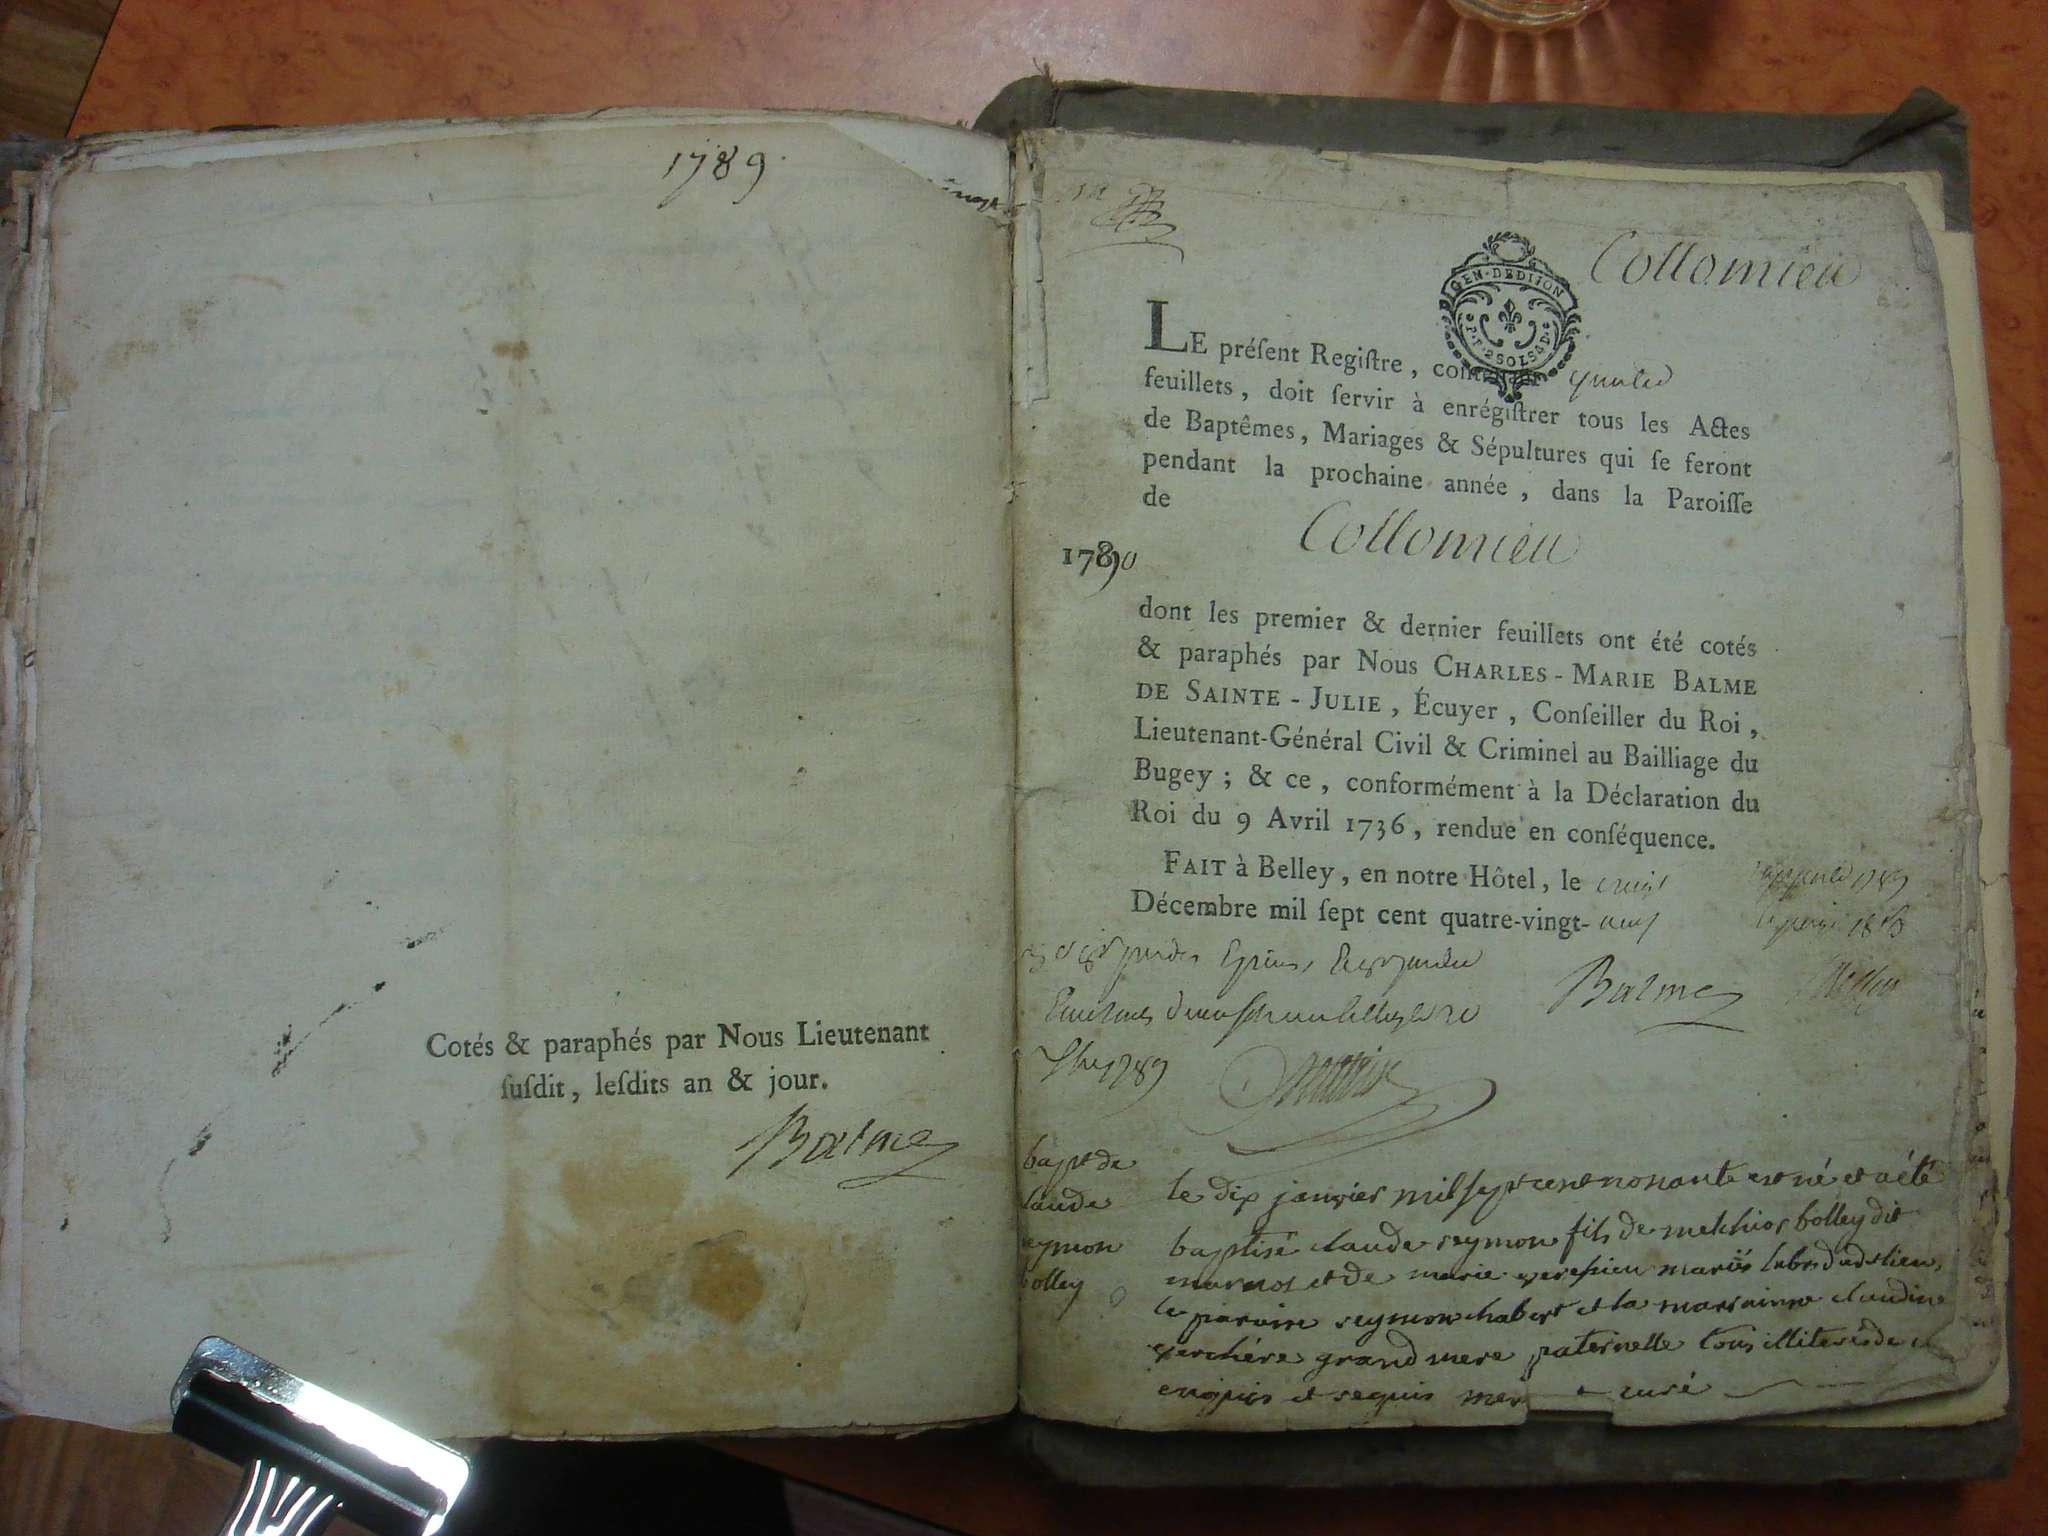 1789.
Cotés & paraphés par Nous Lieutenant
ſuſdit, leſdits an & jour.
Balme
Collomieu
GEN·DEDIJON
2SOLS
LE préſent Regiſtre, contenant quatre
feuillets, doit ſervir à enrégiſtrer tous les Actes
de Baptêmes, Mariages & Sépultures qui ſe feront
pendant la prochaine année, dans la Paroiſſe
de
Collomieu
1790
dont les premier & dernier feuillets ont été cotés
& paraphés par Nous CHARLES-MARIE BALME
DE SAINTE-JULIE, Écuyer, Conſeiller du Roi,
Lieutenant-Général Civil & Criminel au Bailliage du
Bugey; & ce, conformément à la Déclaration du
Roi du 9 Avril 1736, rendue en conſéquence.
FAIT à Belley, en notre Hôtel, le vingt
Décembre mil ſept cent quatre-vingt-neuf
Balme
1789
bapt de
claude
seymon
bolley
le dix janvier mil sept cent nonante est né et a été
baptisé claude seymon fils de melchior bolley dit
marnot et de marie mariés labrs dudt lieu,
le parain seymon chabert et la marainne claudine
grand mere paternelle tous illiterés de ce
enquis et requis curé